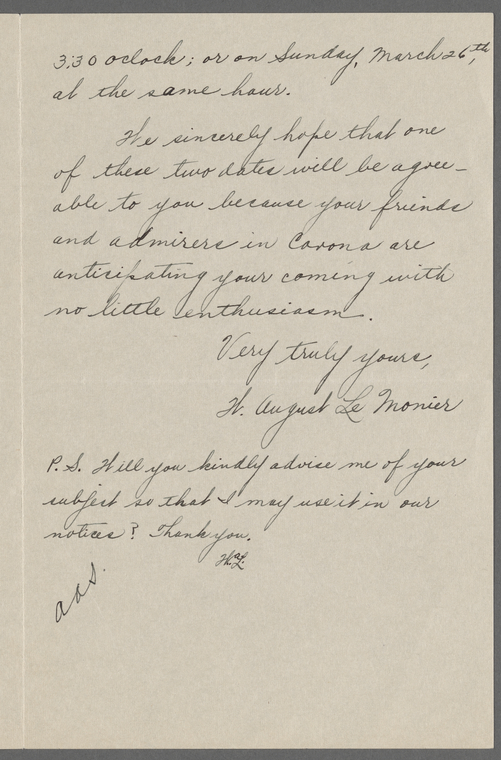 3:30 oclock; or on Sunday, March 26th,
at the same hour.
We sincerely hope that one
of these two dates will be agree-
able to you because your friends
and admirers in Corona are
anticipating your coming with
no little enthusiasm.
Very truly yours,
W. August Le Monier
P.S. Will you kindly advise me of your
subject so that I may use it in our
notices? Thank you.